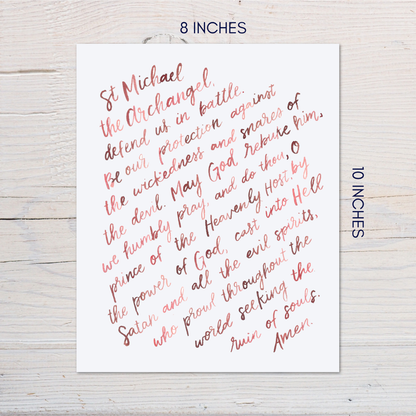 8 INCHES
St Michael
the Archangel,
defend us in battle.
Be our protection against
the wickedness and snares of
the devil. May God rebuke him,
we humbly pray, and do thou, O
prince of the Heavenly Host by
the power of God, cast into Hell
Satan and all the evil spirits,
who prowl throughout the
world seeking the
ruin of souls.
Amen.
10 INCHES